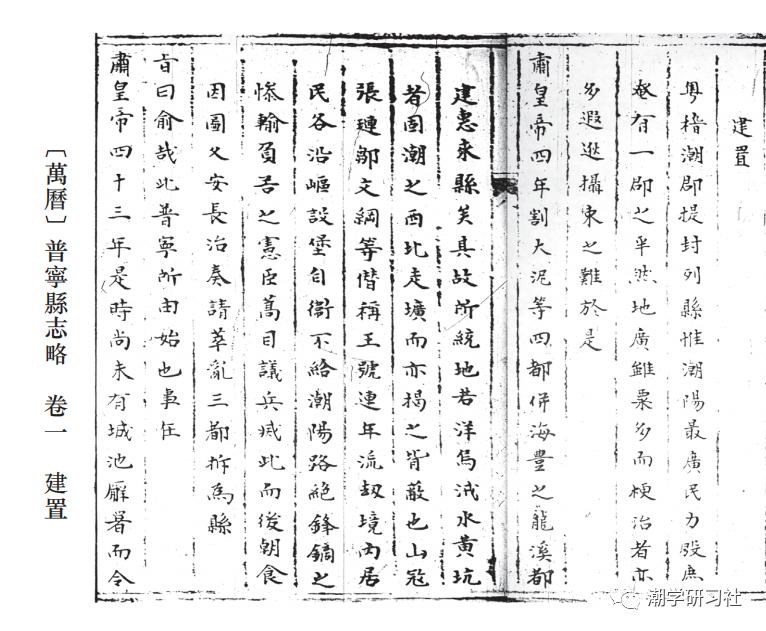 建置
粤稽潮郡提封列縣惟潮陽最廣民力殷庶
奄有一郡之半然地廣雖粟多而梗治者亦
多遐逖攝束之難於是
肅皇帝四年割大泥等四都併海豊之龍溪都
建惠來縣矣其故所統地若洋烏𣲘水黄坑
者固潮之西北走壙而亦揭之背蔽也山宼
張璉鄒文綱等僭稱王號連年流刼境内居
民各沿嶇設堡自衞不給潮陽路絶鋒鏑之
慘輸負苦之憲臣蒿目議兵烕此而後朝食
因圖乂安長治奏請萃亂三都拆爲縣
旨曰俞哉此普寧所由始也事在
肅皇帝四十三年是時尚未有城池廨署而令
〔萬曆〕普寧縣志略 卷一 建置
潮学研习社